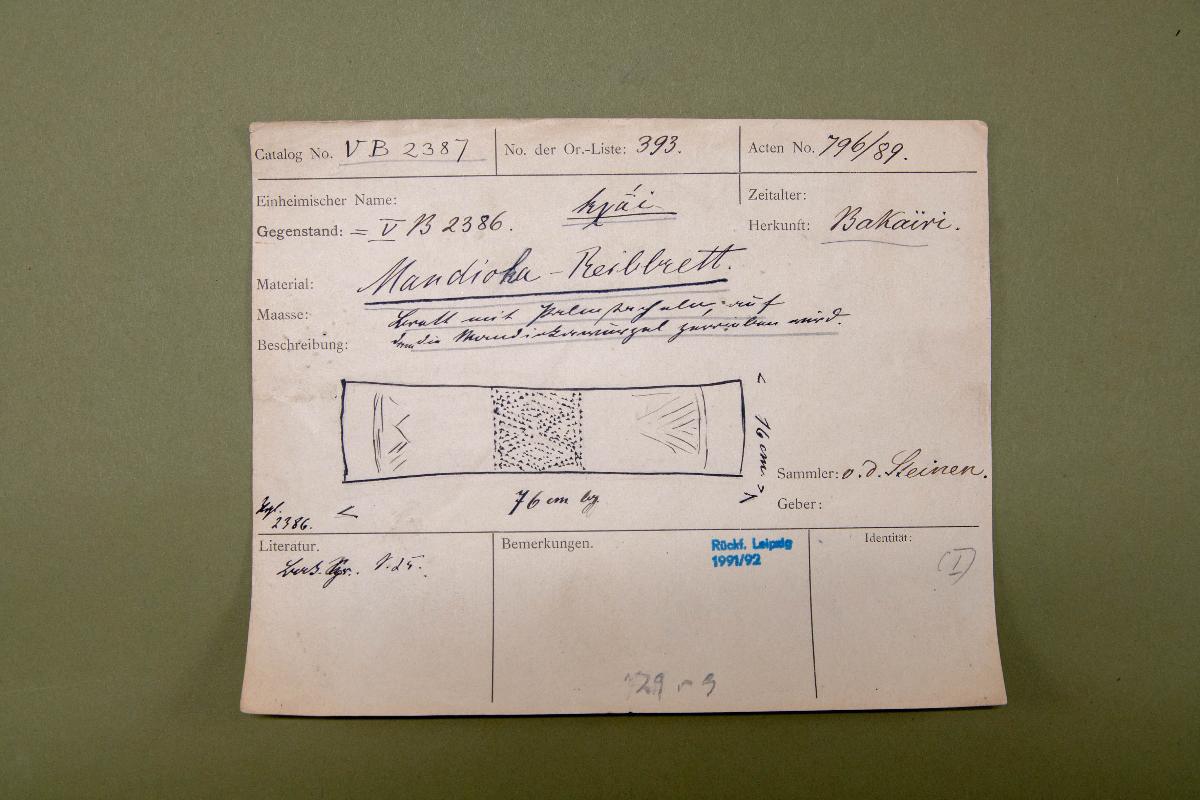 Catalog No. VB 2387
No. der Or.-Liste: 393.
Acten No. 796/89.
Einheimischer Name:
Zeitalter:
Gegenstand: = V B 2386.
Herkunft: Bakäiri.
Material: Mandioka-Reibbrett.
Maasse: Brett mit Palmstacheln, auf
Beschreibung: dem die Mandiokawurzel zerrieben wird.
16 cm.
Sammler: v. d. Steinen.
76 cm lg.
Geber:
Vgl.
2386.
Literatur.
Bemerkungen.
Rückf. Leipzig
1991/92
Identität:
(I)